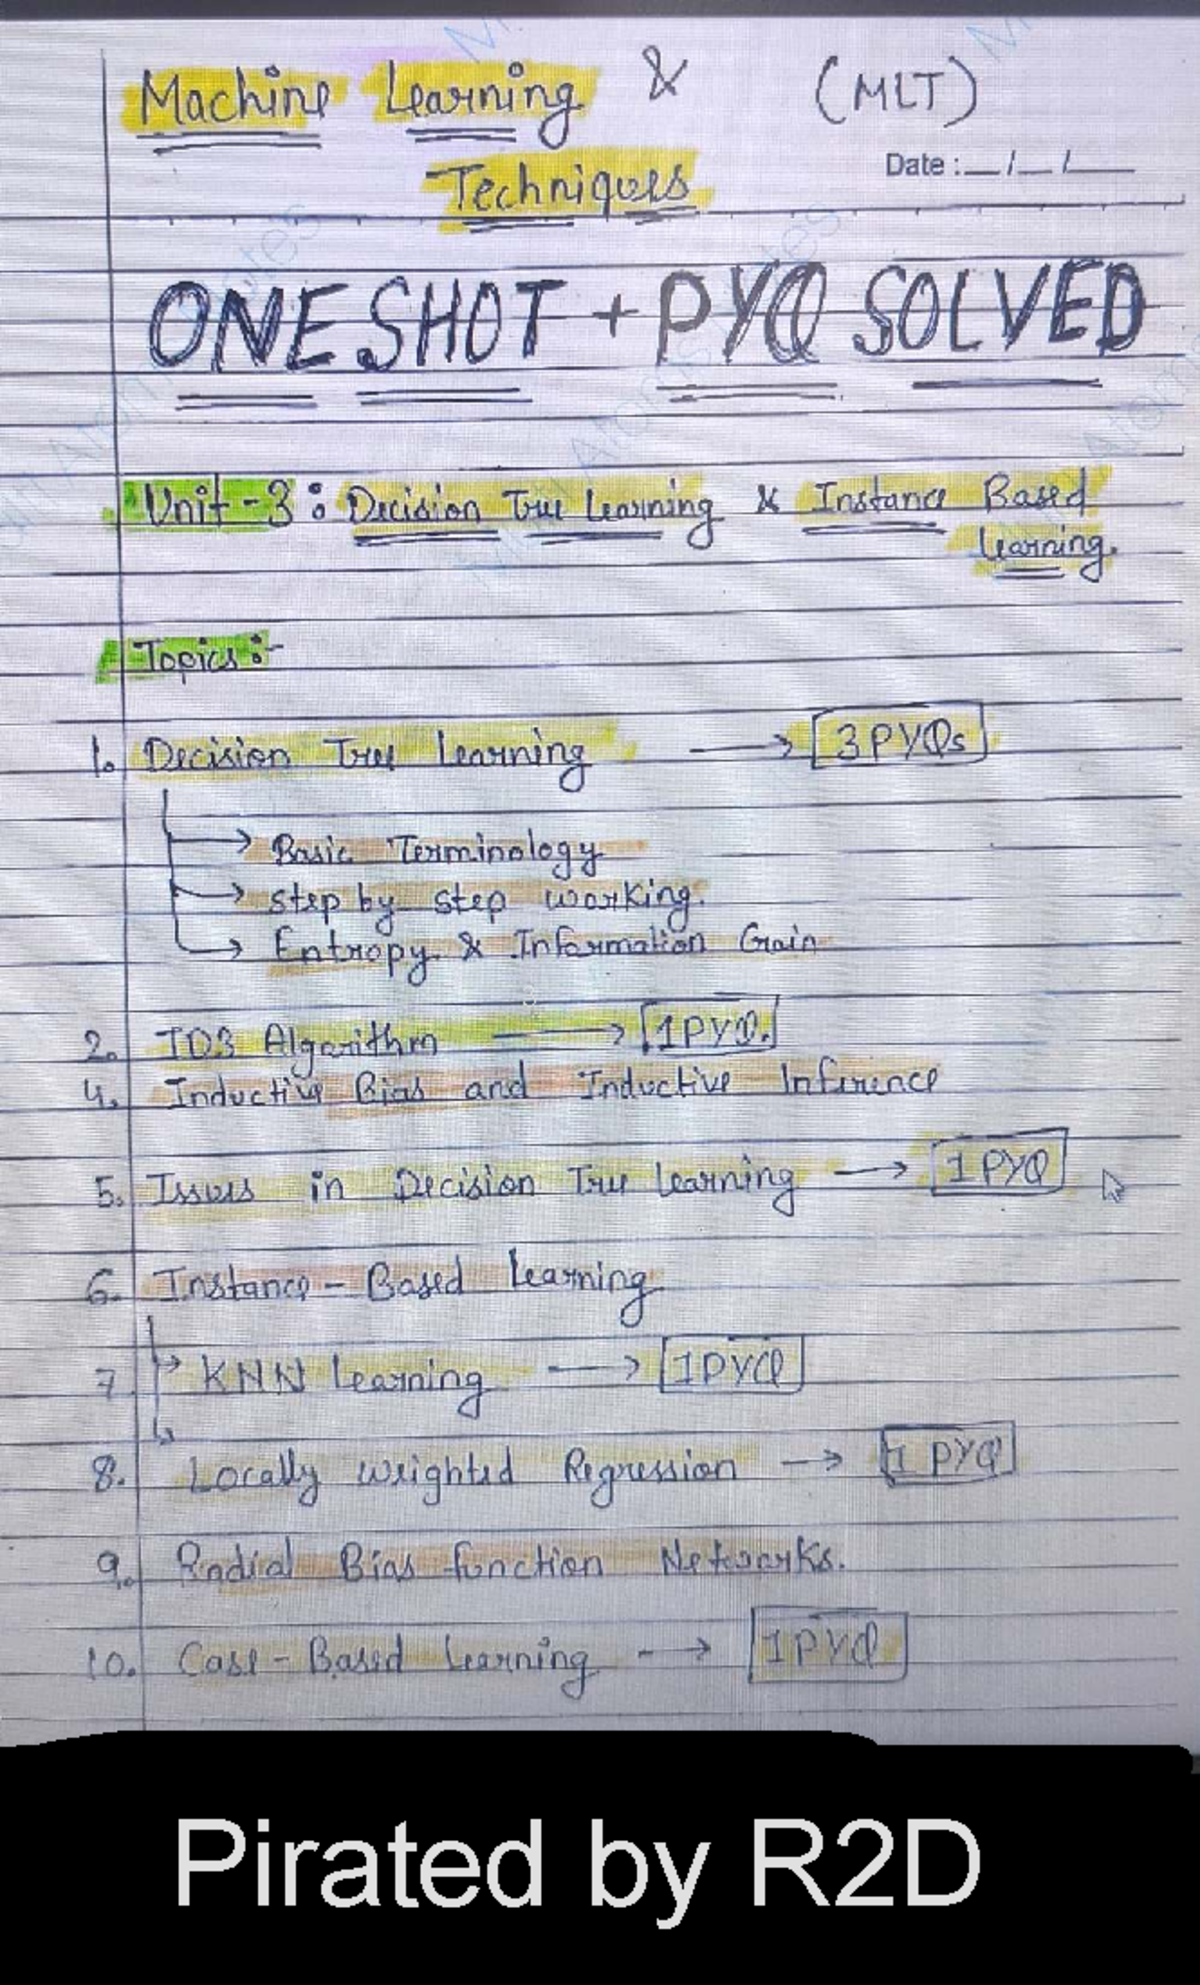 Machine Learning & (MLT)
Techniques
Date : __/__/____
ONE SHOT + PYQ SOLVED
Unit-3: Decision Tree Learning & Instance Based
Learning.
Topics:-
1. Decision Tree Learning → 3 PYQs
→ Basic Terminology
→ step by step working.
→ Entropy & Information Gain
2. ID3 Algorithm → 1 PYQ.
4. Inductive Bias and Inductive Inference
5. Issues in Decision Tree Learning → 1 PYQ
6. Instance-Based Learning
7 → KNN Learning → 1 PYQ
8. Locally Weighted Regression → 1 PYQ
9. Radial Bias function Networks.
10. Case-Based Learning → 1 PYQ
Pirated by R2D